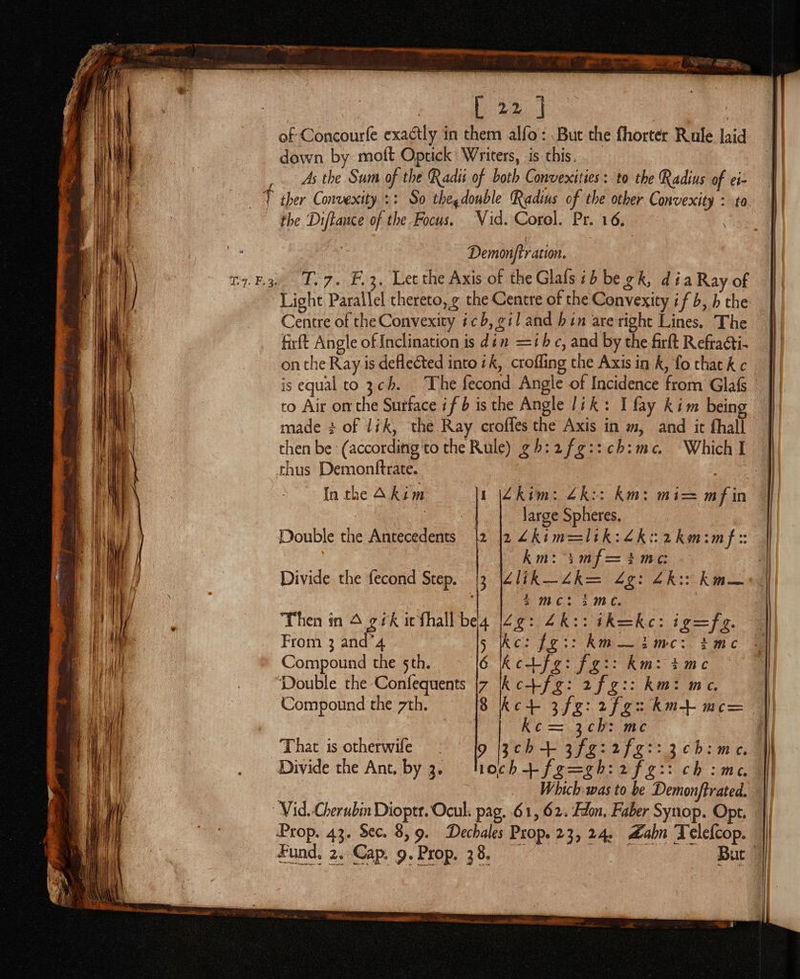 [ 22 ]
of Concourſe exactly in them alſo: But the ſhorter Rule laid
down by moſt Optick Writers, is this.
As the Sum of the Radii of both Convexities : to the Radius of ei-
ther Convexity :: So the double Radius of the other Convexity : to
the Diſtance of the Focus. Vid. Corol. Pr. 16.
Demonſtration.
T.7. F.3. T. 7. F. 3. Let the Axis of the Glaſs i b be g k, d i a Ray of
Light Parallel thereto, g the Centre of the Convexity i f b, h the
Centre of the Convexity i c b, g i l and h i n are right Lines. The
firſt Angle of Inclination is d i n = i h c, and by the firſt Refracti-
on the Ray is deflected into i k, croſſing the Axis in k, ſo that k c
is equal to 3 c h. The ſecond Angle of Incidence from Glaſs
to Air on the Surface i f b is the Angle l i k : I ſay k i m being
made ½ of l i k, the Ray croſſes the Axis in m, and it ſhall
then be (according to the Rule) g h : 2 f g :: c h : m c. Which I
thus Demonſtrate.
In the Δ k i m 1 ∠ k i m : ∠ k :: k m : m i = m f in
large Spheres.
Double the Antecedents 2 2 ∠ k i m = l i k : ∠ k :: 2 k m : m f ::
k m : ½ m f = ½ m c
Divide the ſecond Step. 3 ∠ l i k — ∠ k = ∠ g : ∠ k :: k m —
½ m c : ½ m c.
Then in Δ g i k it ſhall be 4 ∠ g : ∠ k :: i k = k c : i g = f g.
From 3 and 4 5 k c : f g :: k m — ½ m c : ½ m c
Compound the 5th. 6 k c + f g : f g :: k m : ½ m c
Double the Conſequents 7 k c + f g : 2 f g :: k m : m c.
Compound the 7th. 8 k c + 3 f g : 2 f g :: k m + m c =
k c = 3 c h : m c
That is otherwiſe 9 3 c h + 3 f g : 2 f g :: 3 c h : m c.
Divide the Ant. by 3. 10 c h + f g = g h : 2 f g :: c h : m c.
Which was to be Demonſtrated.
Vid. Cherubin Dioptr. Ocul. pag. 61, 62. Hon. Faber Synop. Opt.
Prop. 43. Sec. 8, 9. Dechales Prop. 23, 24. Zahn Teleſcop.
Fund. 2. Cap. 9. Prop. 38.
But